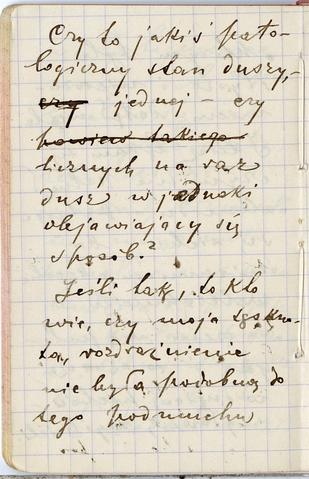 Czy to jakiś pato-
logiczny stan duszy,-
czy jednej - czy
powiew takiego
licznych na raz
dusz w jednaki
objawiający się
sposób?
Jeśli tak, to kto
wie, czy moja tęskno-
ta, rozdrażnienie
nie była podobną do
tego podmuchu,